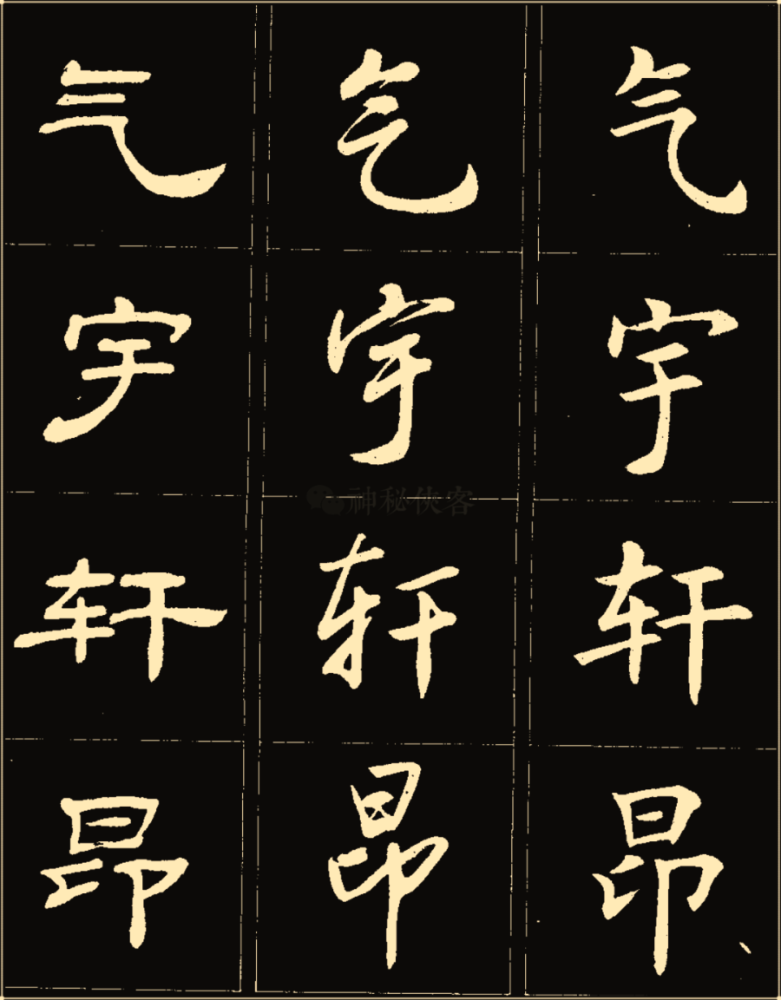 气宇轩昂
气宇轩昂
气宇轩昂
神秘俠客